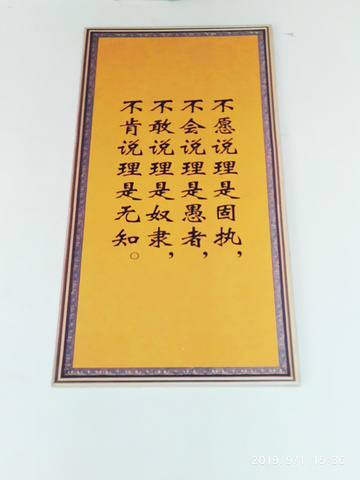 不愿说理是固执，
不会说理是愚者，
不敢说理是奴隶，
不肯说理是无知。
2019/9/1 15:36